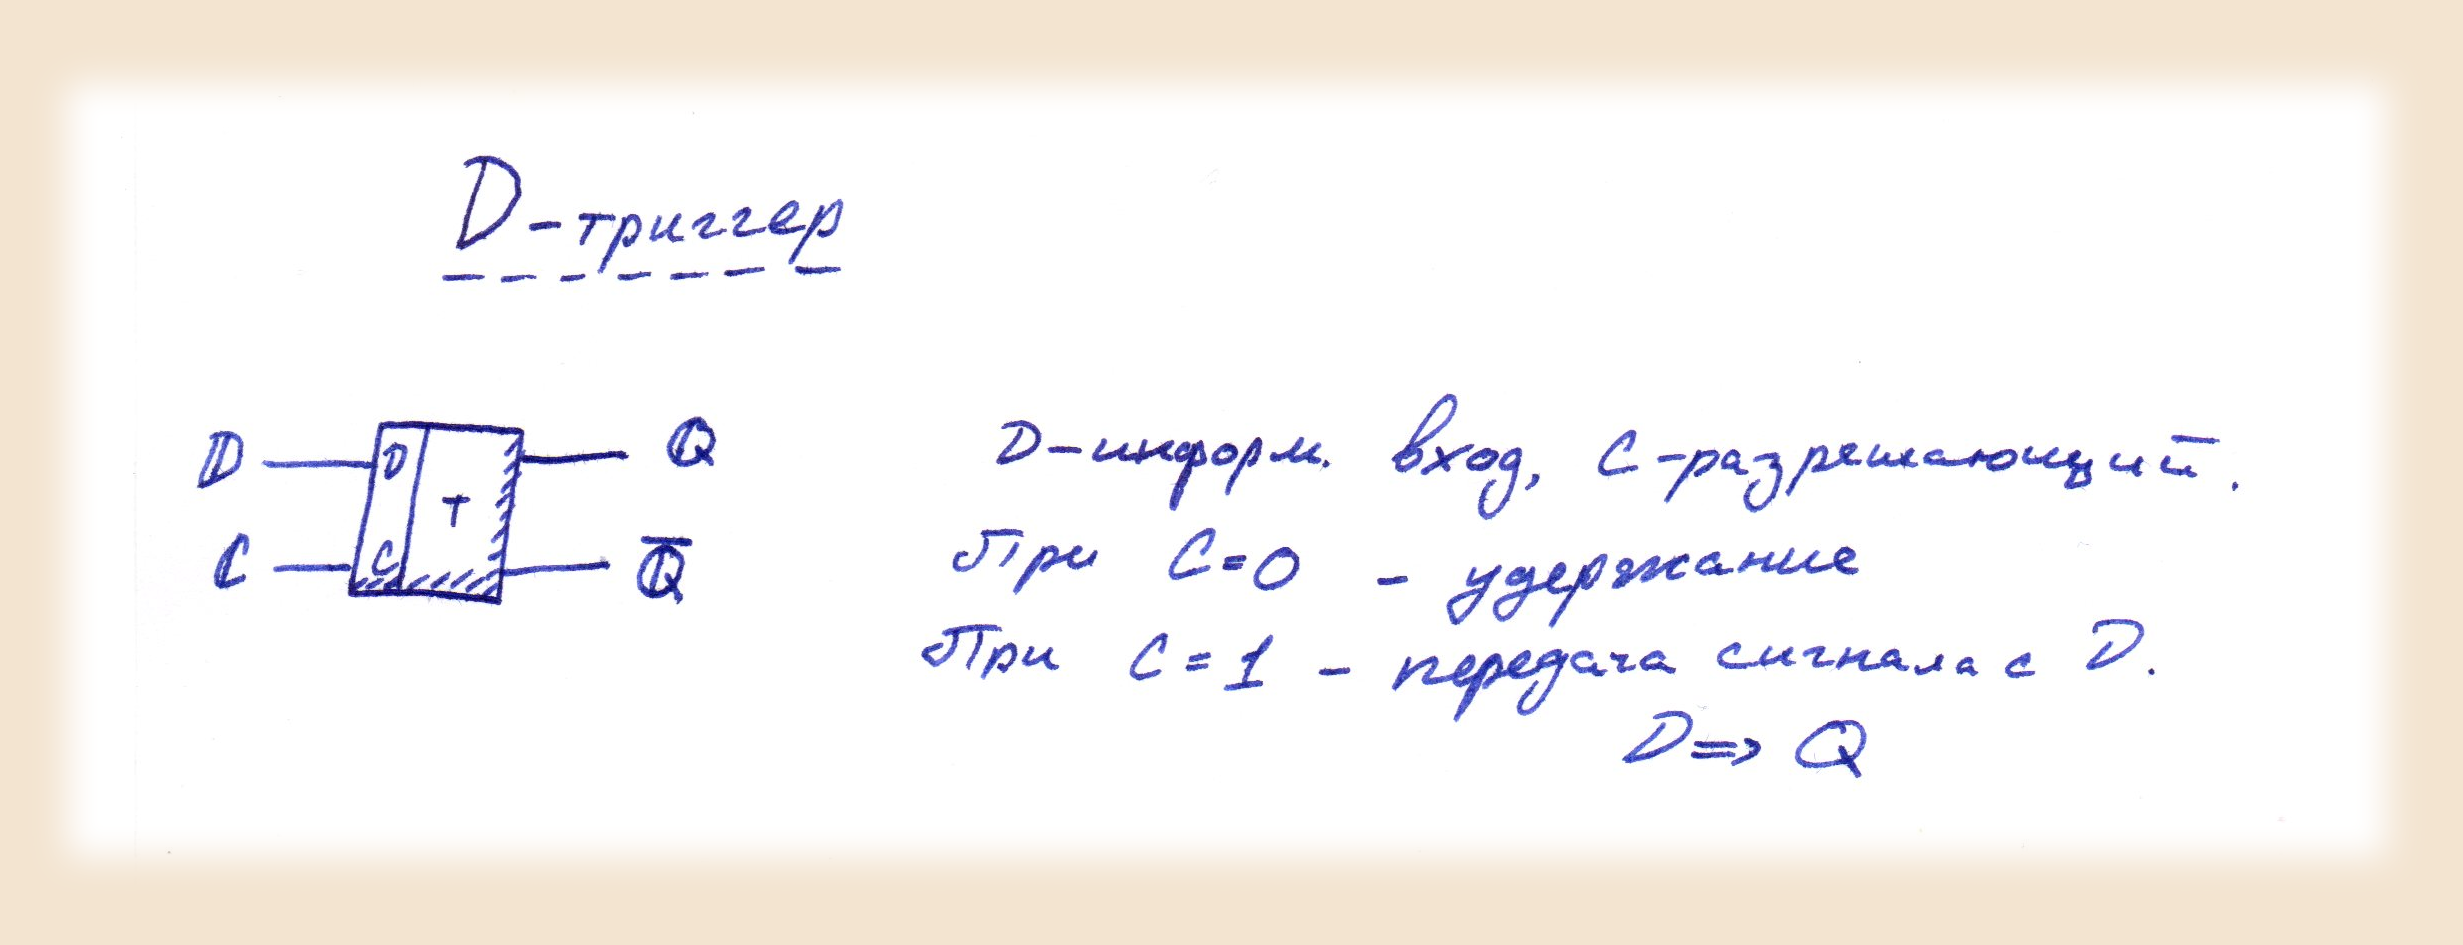 D-триггер
D D T Q
C C Q̅
D-информ. вход, C-разрешающий.
При C=0 - удержание
При C=1 - передача сигнала с D.
D=>Q